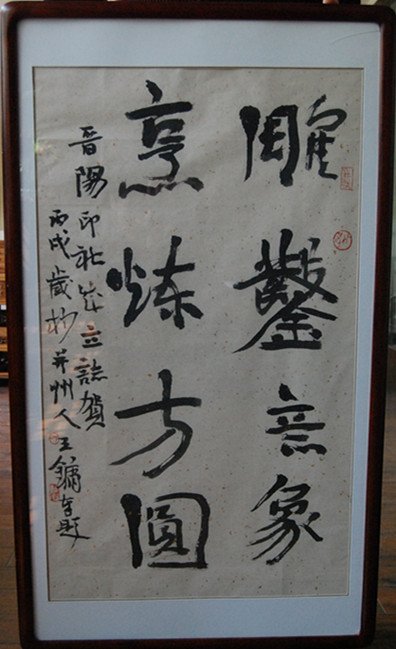 雕鑿意象
烹炼方圓
晋陽印社成立誌賀
丙戌歲杪并州人王鏞奉題